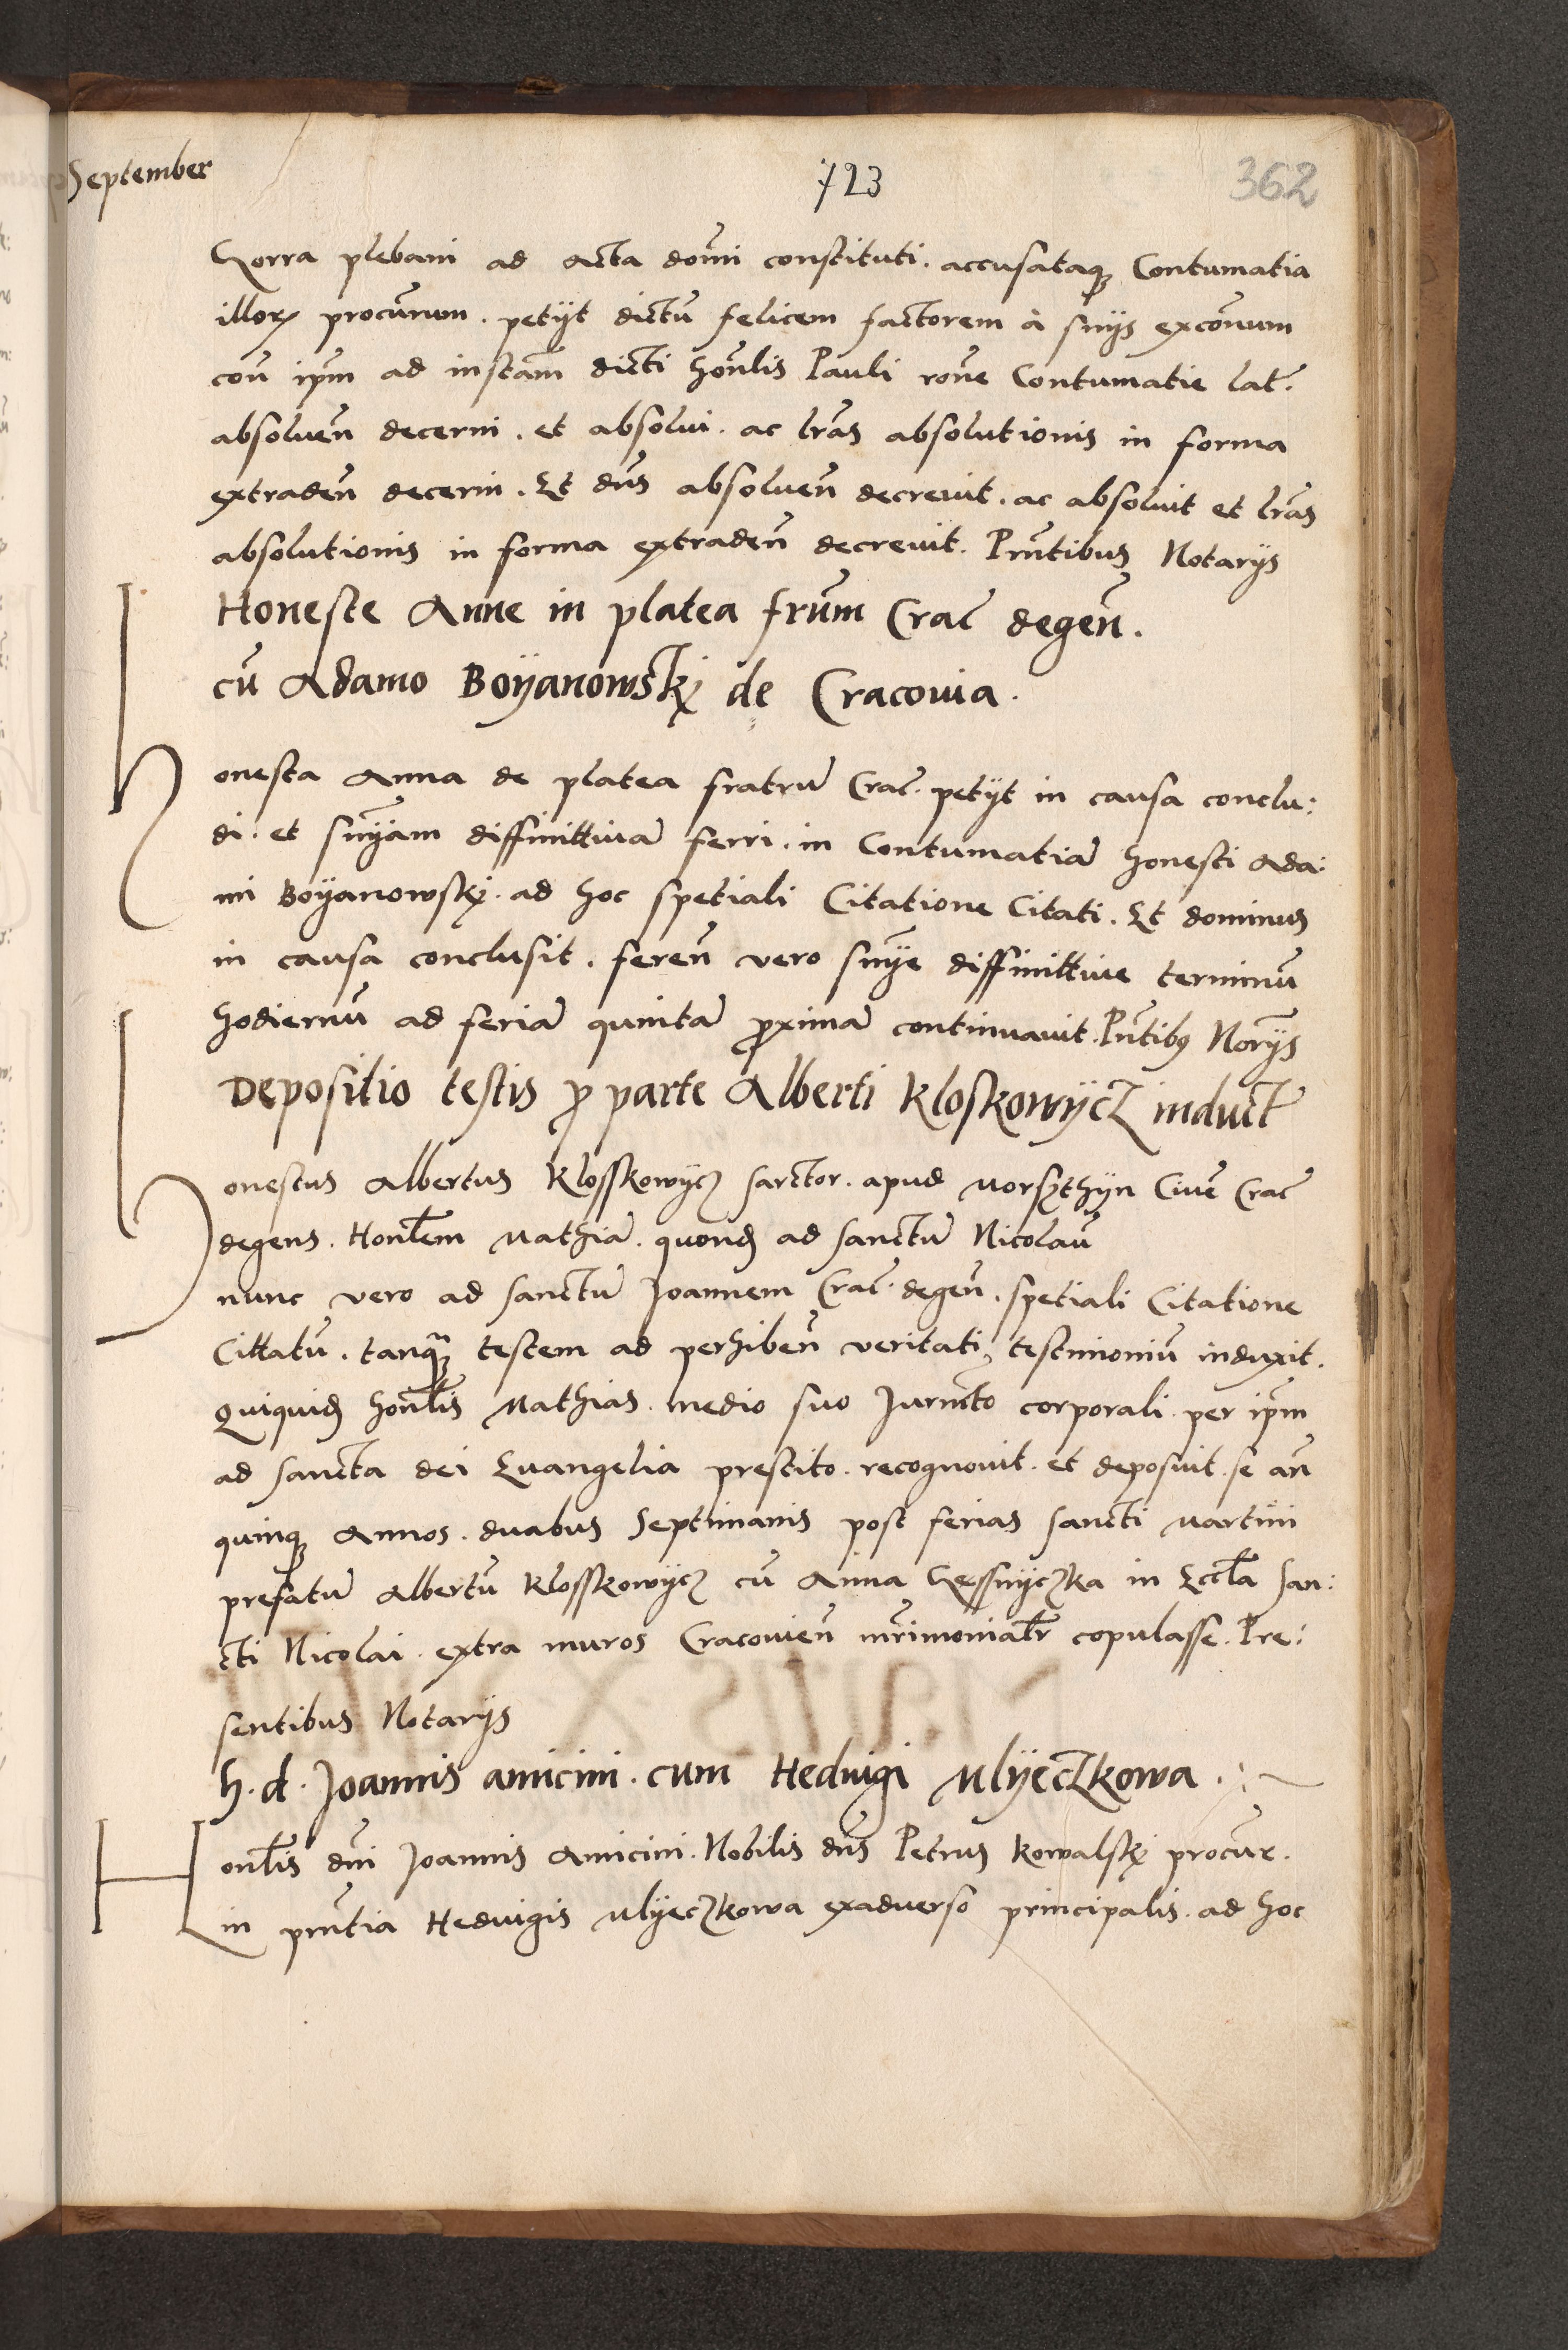 September
723
362
Gorra plebani ad acta domi constituti. accusataq3 Contumatia
illor procurum. petyt dictū felicem factorem à snijs excōnum
coñ ipm ad instam dicti honlis Pauli rone Contumatie lat.
absoluen decerni. et absolui. ac lras absolutionis in forma
extraden decerni. Et dns absoluen decreuit. ac absoluit et lras
absolutionis in forma extraden decreuit. Pnntibus Notarijs
Honeste Anne in platea frum Crac degen.
cū Adamo Boyanowskj de Cracouia.
Honesta Anna de platea fratrū Crac. petijt in causa conclu:
di. et sniam diffinittiuā ferri. in Contumatiā honesti Ada:
mi Boyanowskj. ad hoc spetiali Citatione Citati. Et dominus
in causa conclusit. feren vero snie diffinittiue terminū
hodiernū ad feriā quintā proximā continuauit. Pntib9 Norijs
Depositio testis p parte Alberti Kloskowycz induct
Honestus Albertus Klosskowycz sarctor. apud Morsthyn Ciuē Crac
degens. Honlem Mathiā. quond ad sanctū Nicolaū
nunc vero ad sanctū Joannem Crac. degen. spetiali Citatione
Cittatū. tanq3 testem ad perhiben veritati testimoniū induxit.
Quiquid honlis Mathias. medio suo Jurmcto corporali. per ipm
ad sancta dei Euangelia prestito. recognouit. et deposuit. se an
quinq3 Annos. duabus Septimanis post ferias sancti Martini
prefatū Albertū Klosskowycz cū Anna in Eccla San:
cti Nicolai. extra muros Cracouien mrimonialr copulasse. Pre:
sentibus Notarijs
h. d. Joannis amicini. cum Heduigi Mlyeczkowa.
Honlis dni Joannis Amicini. Nobilis dns Petrus Kowalskj procur.
in pnntia Heduigis Mlyeczkowa exaduerso principalis. ad hoc